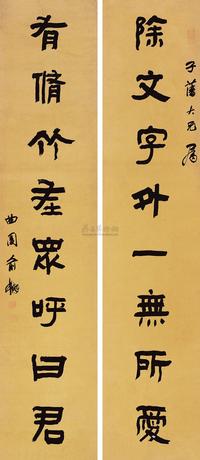 子蕃大兄屬
除文字外一無所愛
有脩竹 眾呼曰君
曲園俞樾